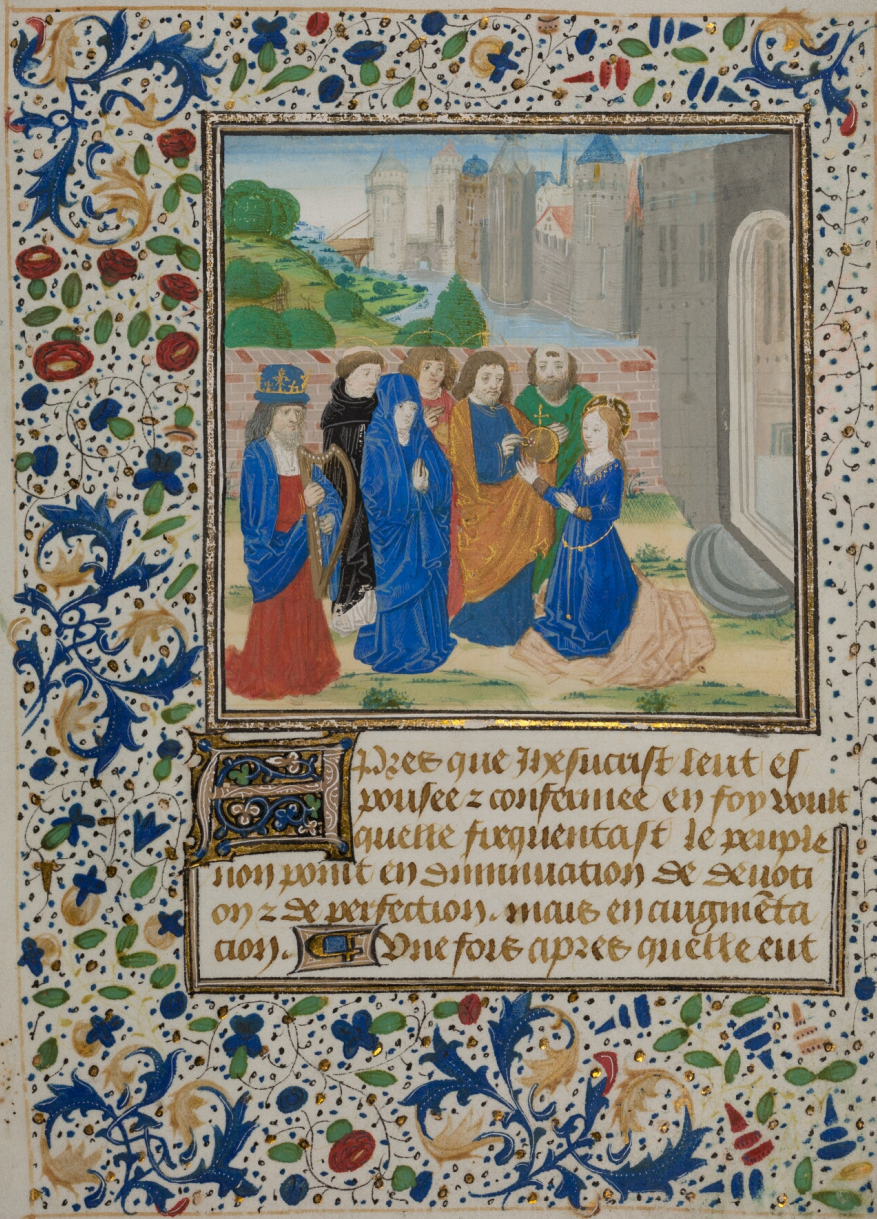 Apres que Jhesucrist leut es
pousee & confermee en foy voult
quelle frequentast le peuple
non point en diminuation de devoti
on & de perfection. mais en augmēta
cion. Une fois apres quelle eut